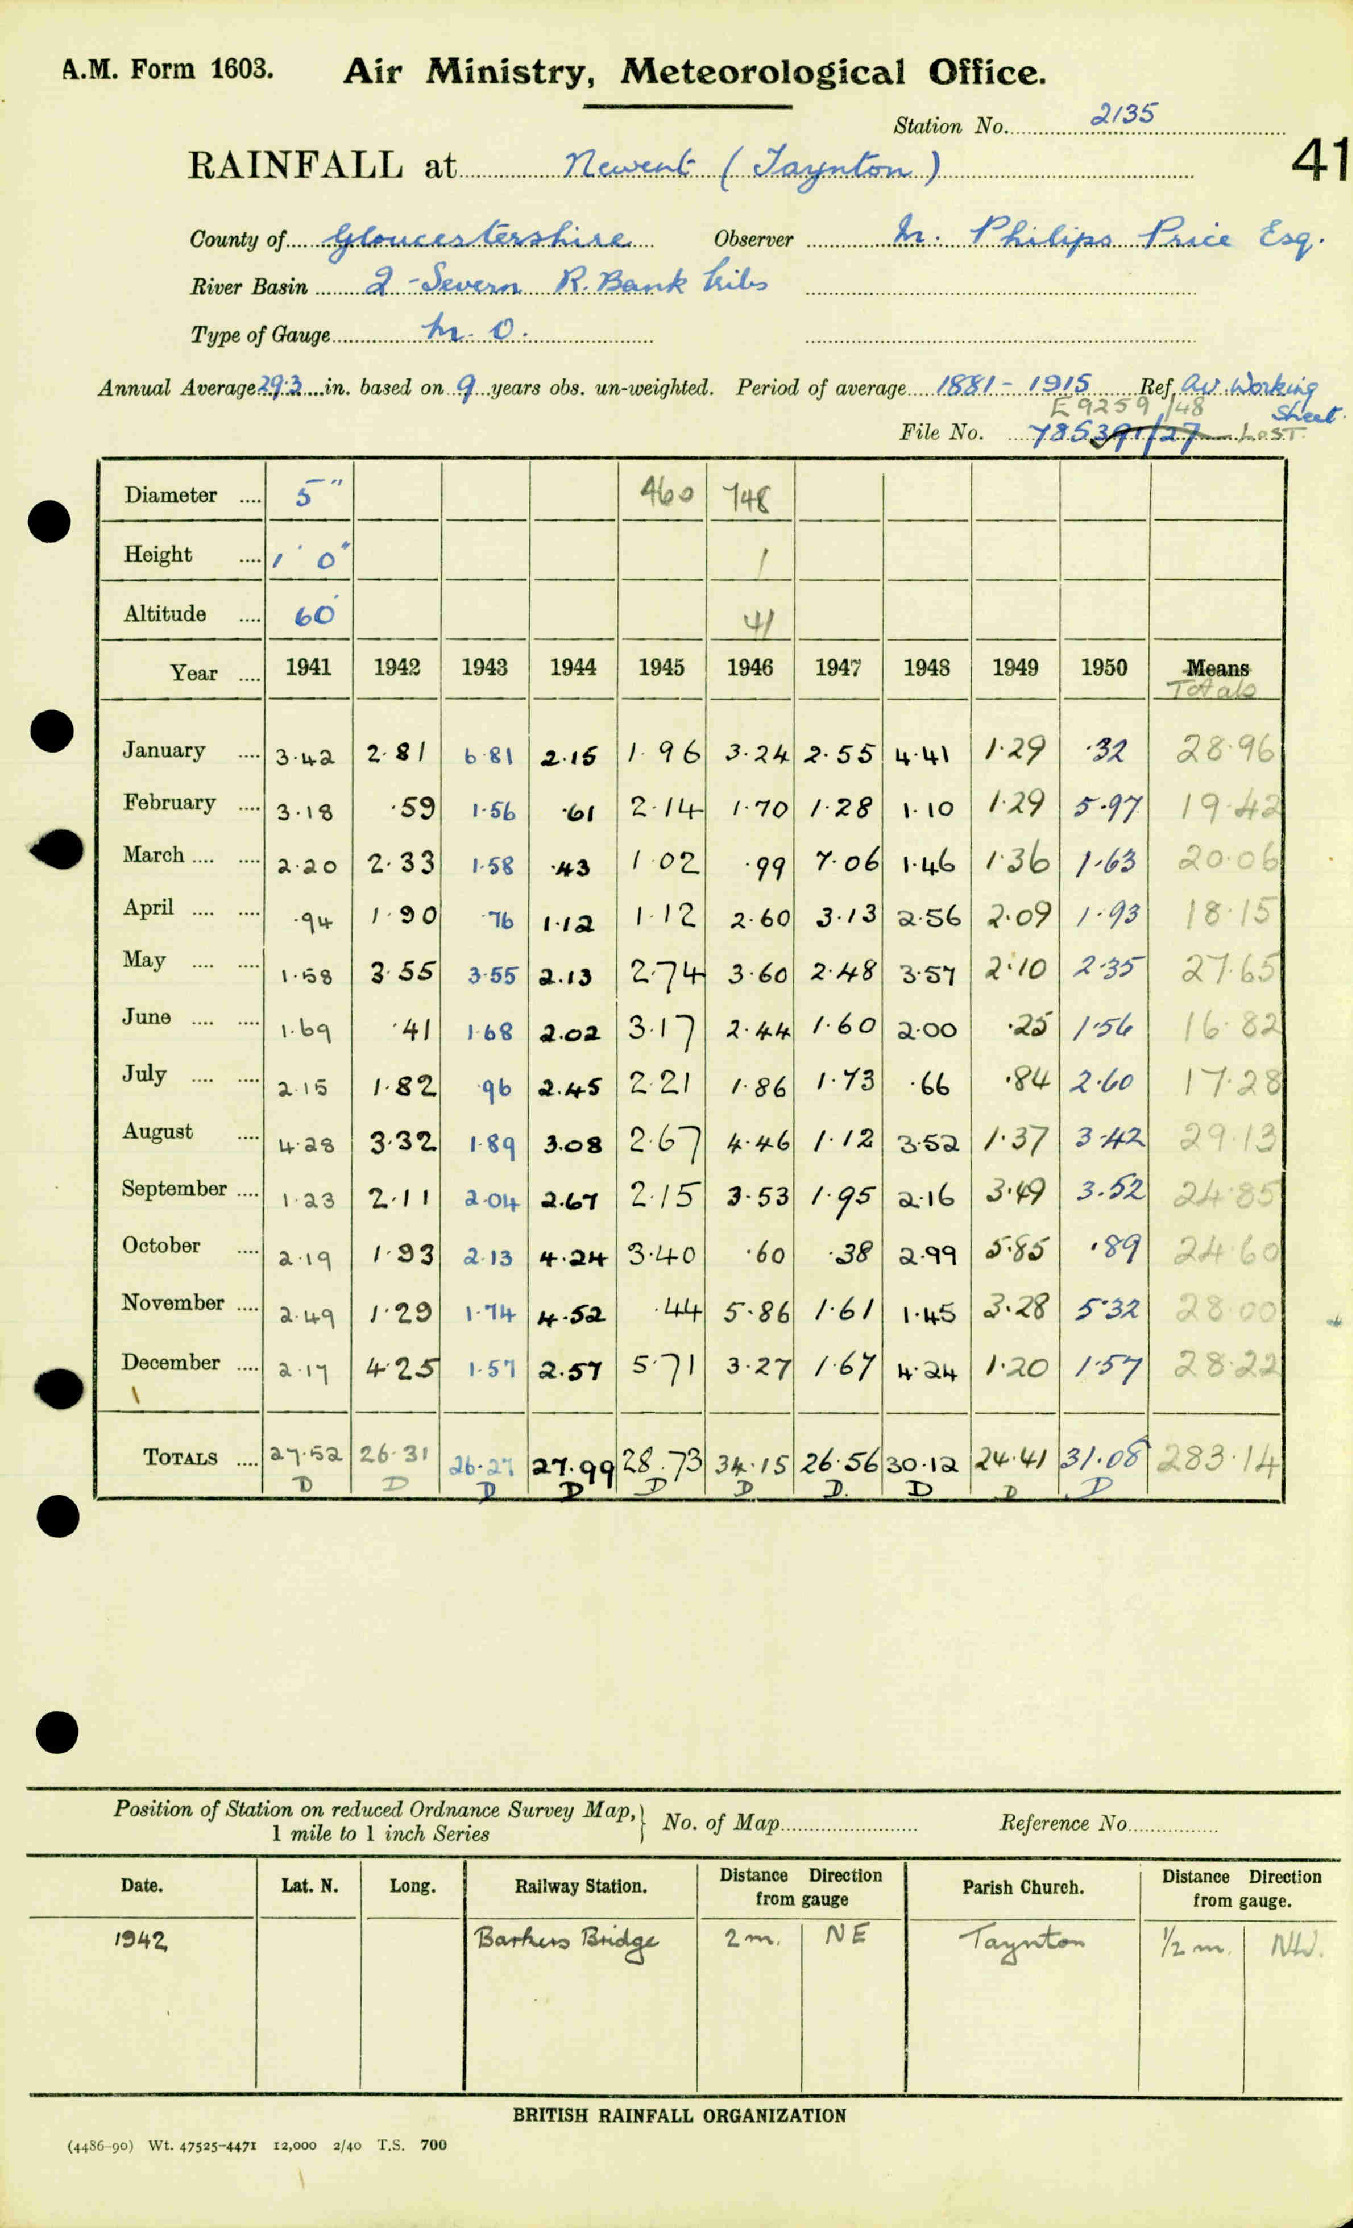 A.M. Form 1603. Air Ministry, Meteorological Office.
Station No. 2135
41
RAINFALL at Newent (Taynton)
County of Gloucestershire Observer M. Philips Price Esq.
River Basin 2 - Severn R. Bank tribs
Type of Gauge M.O.
Annual Average 29.3 in. based on 9 years obs. un-weighted. Period of average 1881 - 1915 Ref. Av. Working Sheet.
E9259/48
File No. 785391/27 LOST.
Diameter .... 5" 460 748
Height .... 1' 0" 1
Altitude .... 60' 41
Year .... 1941 1942 1943 1944 1945 1946 1947 1948 1949 1950 Means
Totals
January .... 3.42 2.81 6.81 2.15 1.96 3.24 2.55 4.41 1.29 .32 28.96
February .... 3.18 .59 1.56 .61 2.14 1.70 1.28 1.10 1.29 5.97 19.42
March .... .... 2.20 2.33 1.58 .43 1.02 .99 7.06 1.46 1.36 1.63 20.06
April .... .... .94 1.90 .76 1.12 1.12 2.60 3.13 2.56 2.09 1.93 18.15
May .... .... 1.58 3.55 3.55 2.13 2.74 3.60 2.48 3.57 2.10 2.35 27.65
June .... .... 1.69 .41 1.68 2.02 3.17 2.44 1.60 2.00 .25 1.56 16.82
July .... .... 2.15 1.82 .96 2.45 2.21 1.86 1.73 .66 .84 2.60 17.28
August .... 4.28 3.32 1.89 3.08 2.67 4.46 1.12 3.52 1.37 3.42 29.13
September .... 1.23 2.11 2.04 2.67 2.15 3.53 1.95 2.16 3.49 3.52 24.85
October .... 2.19 1.93 2.13 4.24 3.40 .60 .38 2.99 5.85 .89 24.60
November .... 2.49 1.29 1.74 4.52 .44 5.86 1.61 1.45 3.28 5.32 28.00
December .... 2.17 4.25 1.57 2.57 5.71 3.27 1.67 4.24 1.20 1.57 28.22
TOTALS .... 27.52 26.31 26.27 27.99 28.73 34.15 26.56 30.12 24.41 31.08 283.14
D D D D D D D. D D D
Position of Station on reduced Ordnance Survey Map, 1 mile to 1 inch Series } No. of Map Reference No.
Date. Lat. N. Long. Railway Station. Distance Direction from gauge Parish Church. Distance Direction from gauge.
1942 Barkers Bridge 2 m. NE Taynton 1/2 m. NW.
BRITISH RAINFALL ORGANIZATION
(4486-90) Wt. 47525-4471 12,000 2/40 T.S. 700